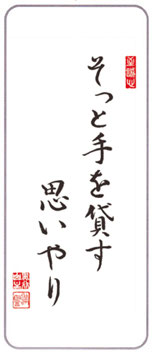 そっと手を貸す
思いやり